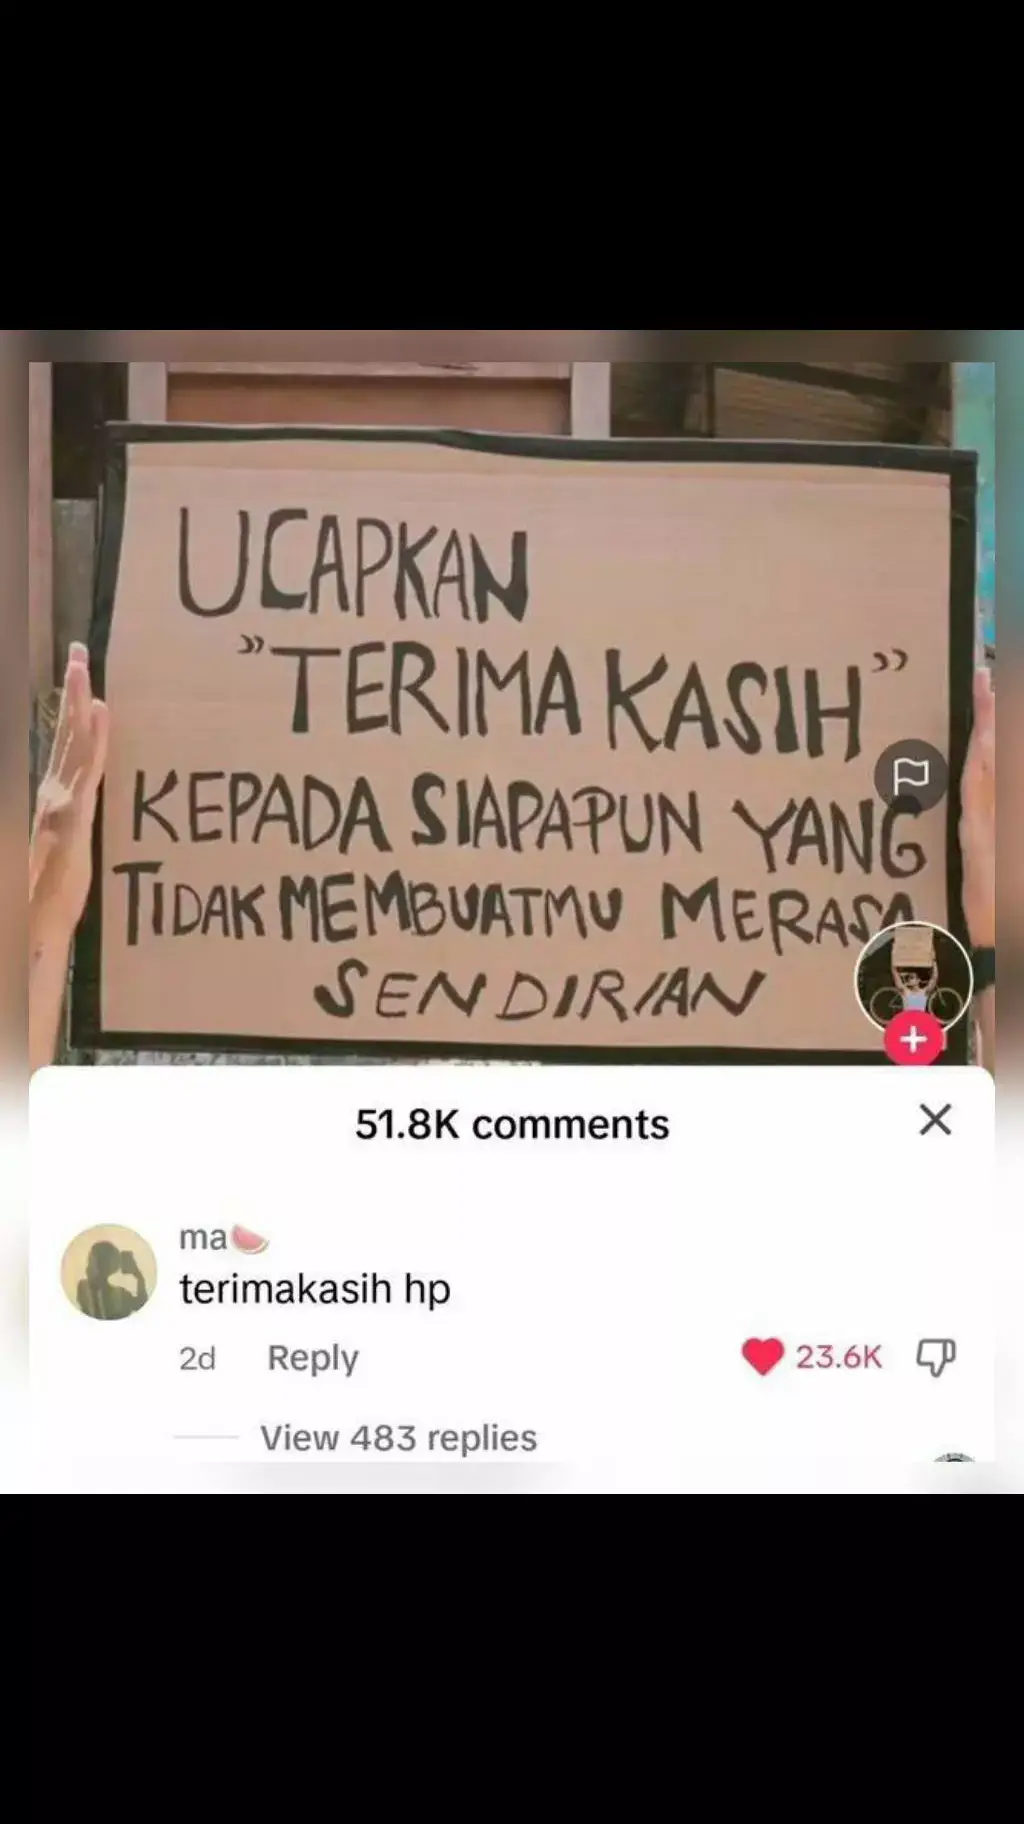 UCAPKAN
"TERIMA KASIH"
KEPADA SIAPAPUN YANG
TIDAK MEMBUATMU MERASA
SENDIRIAN
51.8K comments
ma🍉
terimakasih hp
2d Reply 23.6K
View 483 replies